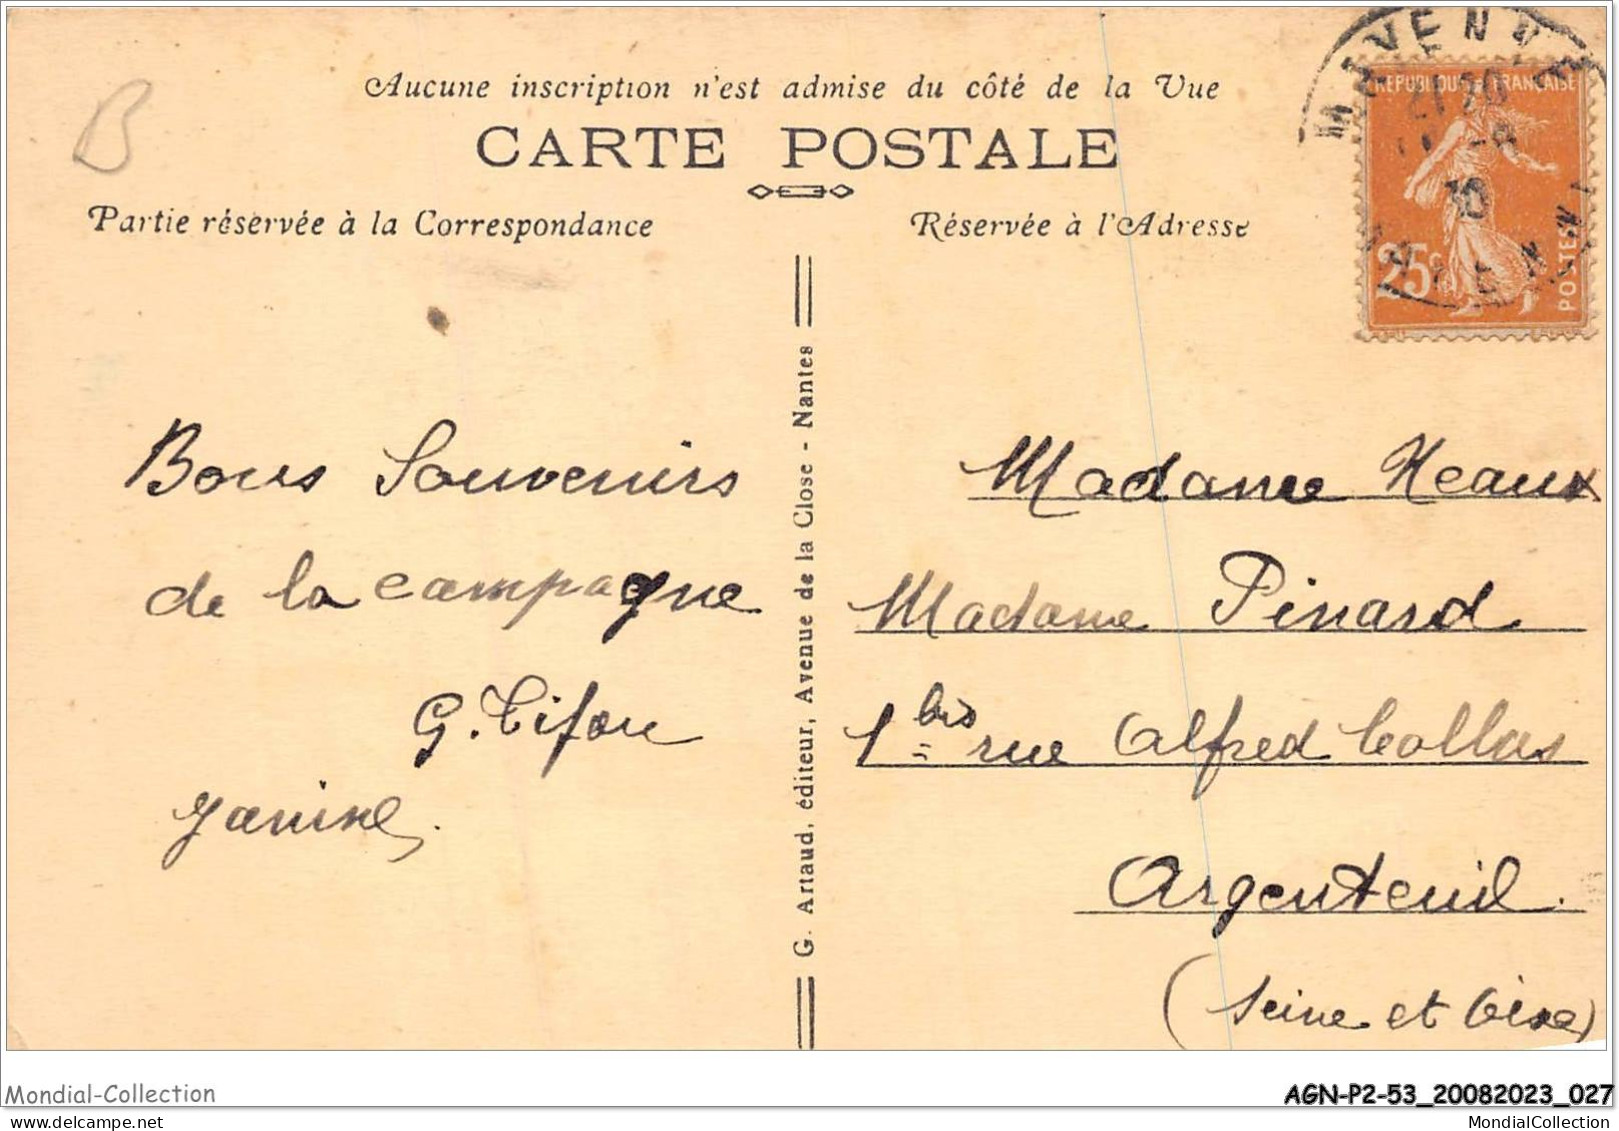 B
Aucune inscription n'est admise du côté de la Vue
CARTE POSTALE
Partie réservée à la Correspondance
Réservée à l'Adresse
MAYENNE
21 20
30
MAYENNE
REPUBLIQUE FRANÇAISE
25c
POSTES
Bons Souvenirs
de la campagne
G. Tifou
Janine.
G. Artaud, éditeur, Avenue de la Close - Nantes
Madame Heaux
Madame Pinard
1 bis rue Alfred Collas
Argenteuil.
(Seine et Oise)
Mondial-Collection
AGN-P2-53_20082023_027
MondialCollection